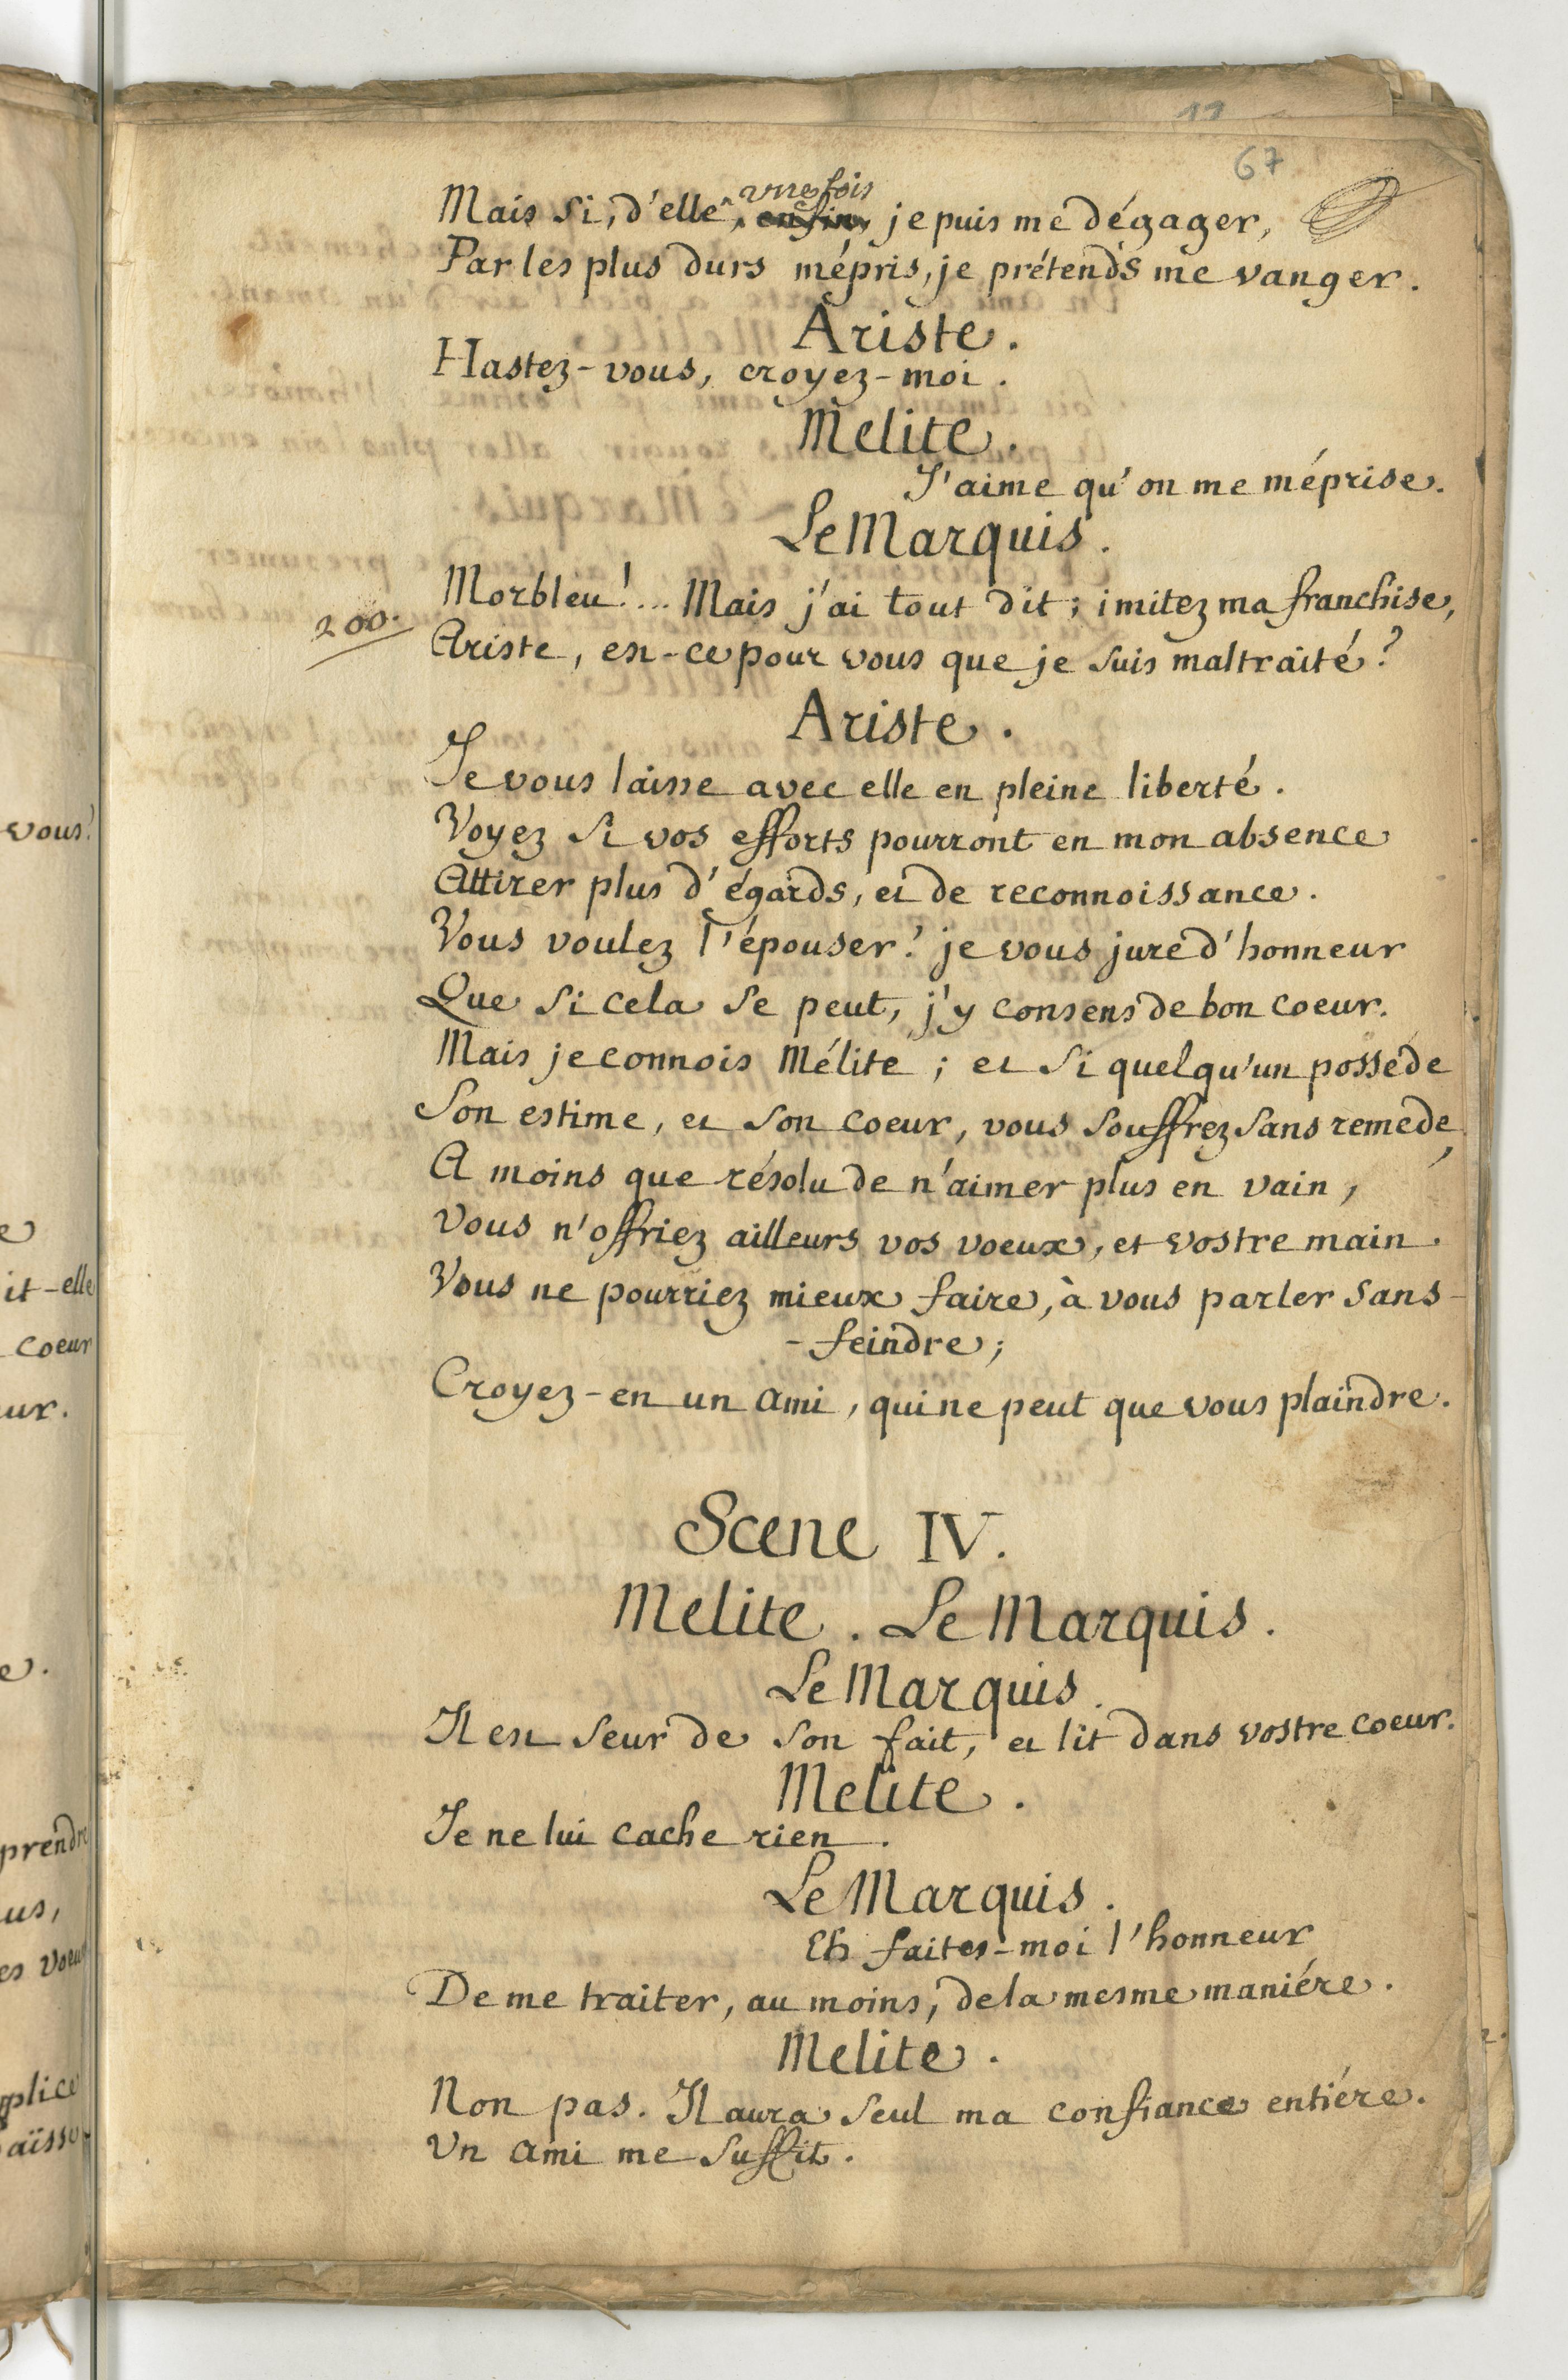 11
67
Mais si, d'elle, une fois je puis me dégager,
Par les plus durs mépris, je prétends me vanger.
Ariste.
Hastez-vous, croyez-moi.
Melite.
J'aime qu'on me méprise.
Le Marquis.
Morbleu!... Mais j'ai tout dit; imitez ma franchise,
200.
Ariste, est-ce pour vous que je suis maltraité?
Ariste.
Je vous laisse avec elle en pleine liberté.
Voyez si vos efforts pourront en mon absence
Attirer plus d'égards, et de reconnoissance.
Vous voulez l'épouser? je vous jure d'honneur
Que si cela se peut, j'y consens de bon coeur.
Mais je connois Mélite; et si quelqu'un posséde
Son estime, et son coeur, vous souffrez sans reméde,
A moins que résolu de n'aimer plus en vain,
Vous n'offriez ailleurs vos voeux, et vostre main.
Vous ne pourriez mieux faire, à vous parler sans-
-feindre;
Croyez-en un ami, qui ne peut que vous plaindre.
Scene IV.
Melite. Le Marquis.
Le Marquis.
Il est seur de son fait, et lit dans vostre coeur.
Melite.
Je ne lui cache rien.
Le Marquis.
Eh faites-moi l'honneur
De me traiter, au moins, de la mesme maniére.
Melite.
Non pas. Il aura seul ma confiance entiére.
Un ami me suffit.